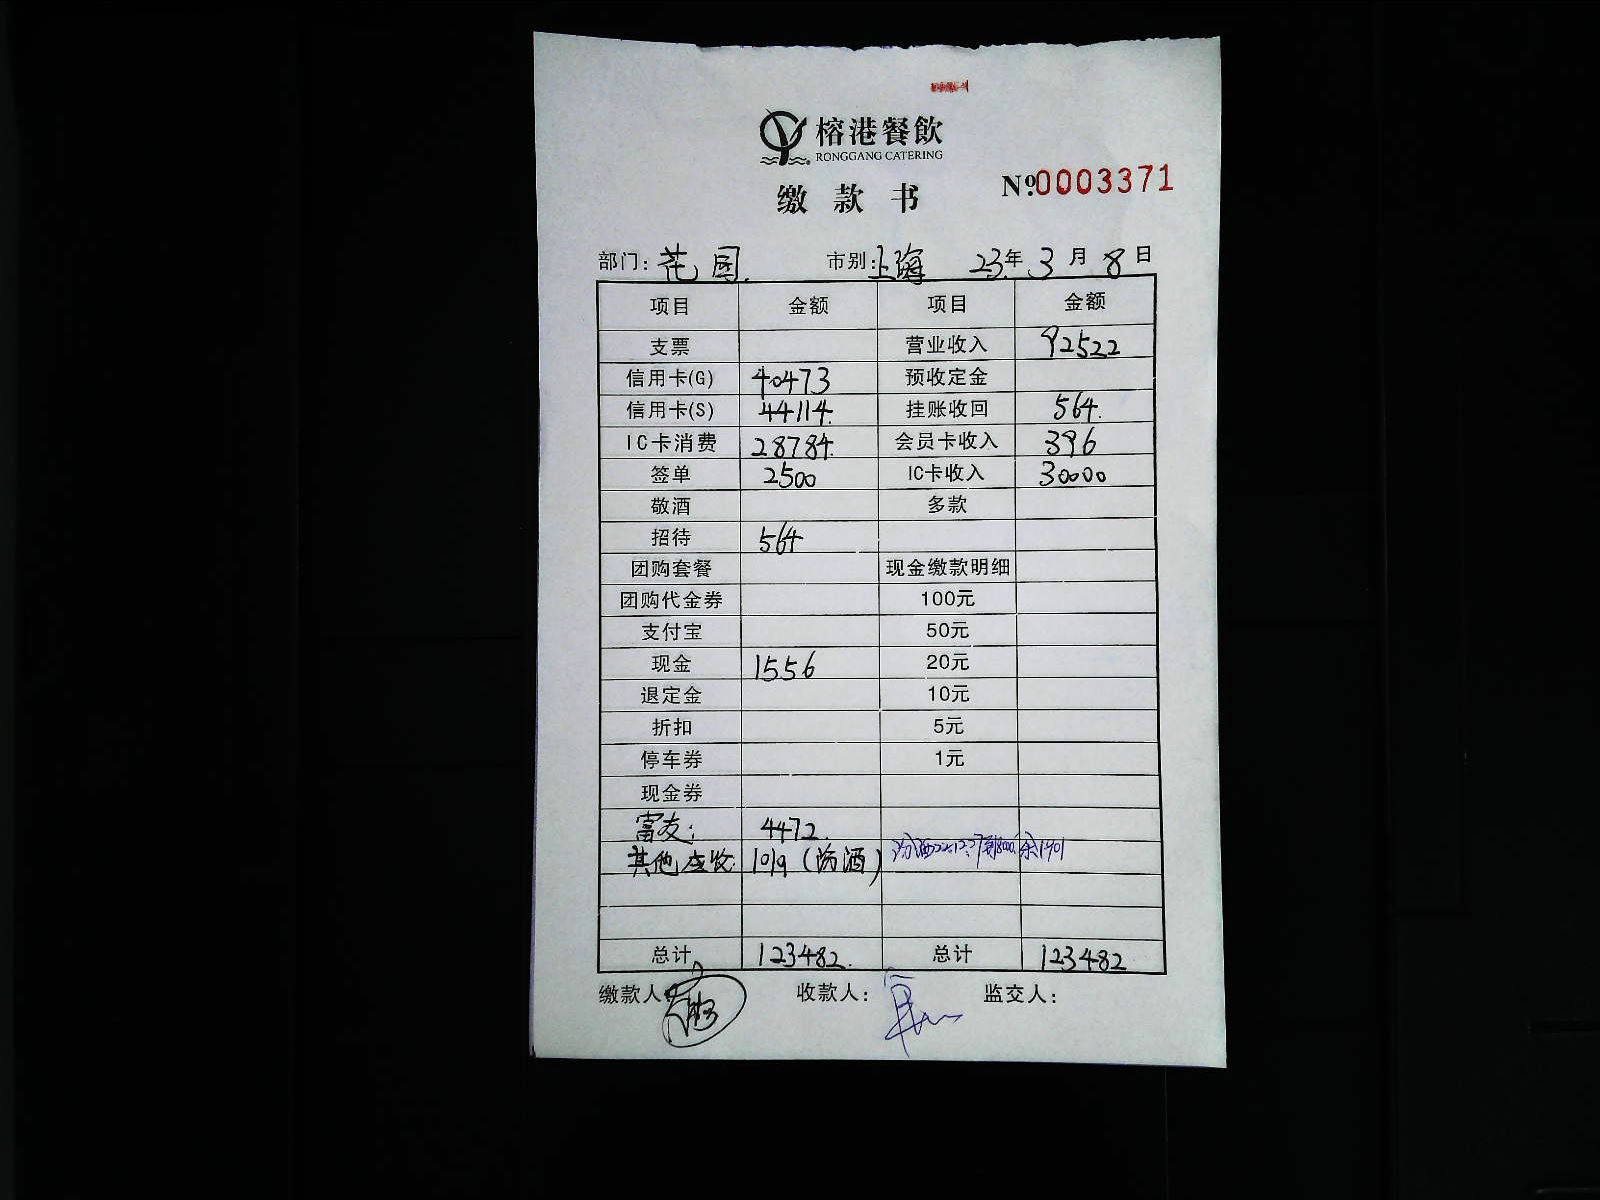 榕港餐飲
RONGGANG CATERING
缴款书 №0003371
部门: 花园. 市别: 上海 23年 3月 8日
项目 金额 项目 金额
支票 营业收入 92522
信用卡(G) 40473 预收定金
信用卡(S) 44114. 挂账收回 564.
IC卡消费 28784. 会员卡收入 396
签单 2500 IC卡收入 30000
敬酒 多款
招待 564
团购套餐 现金缴款明细
团购代金券 100元
支付宝 50元
现金 1556 20元
退定金 10元
折扣 5元
停车券 1元
现金券
富友: 4472.
其他应收: 1019 (汾酒) 汾酒22.12.27
总计 123482. 总计 123482
缴款人: 收款人: 监交人: